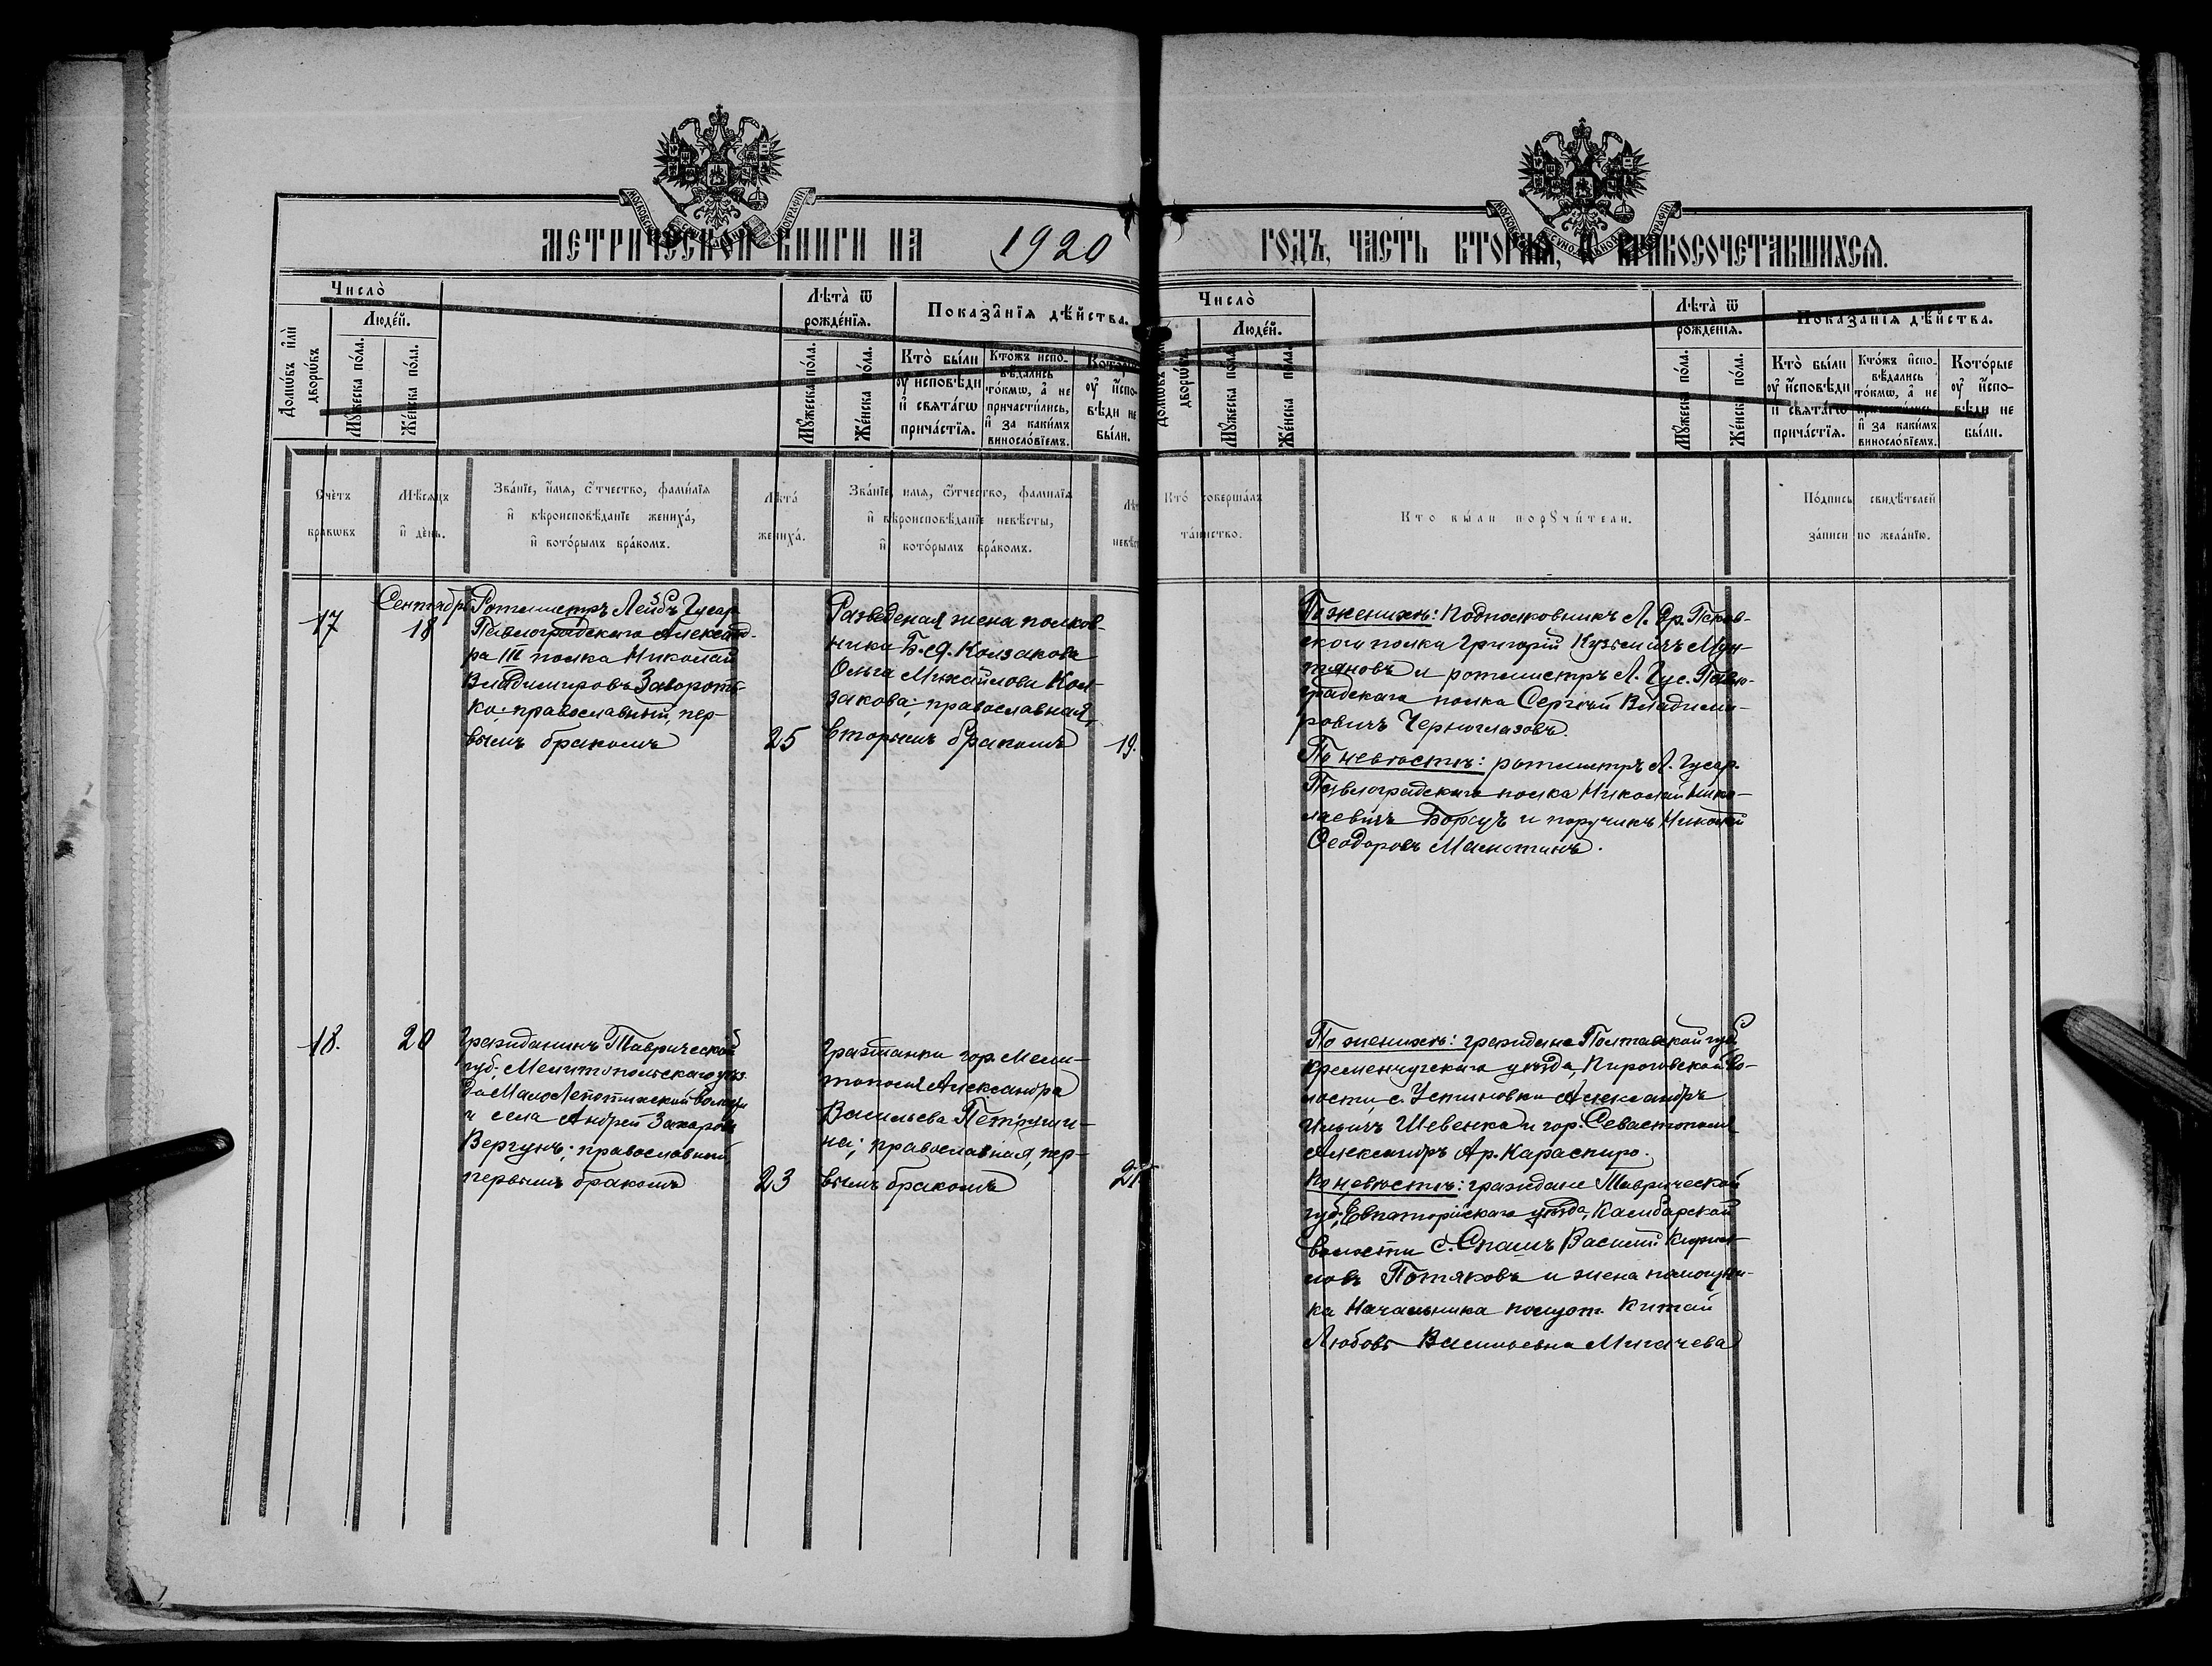 МЕТРИЧЕСКОЙ КНИГИ НА 1920 ГОДЪ, ЧАСТЬ ВТОРАЯ, О БРАКОСОЧЕТАВШИХСЯ.
МОСКОВСКОЙ СѴНОДАЛЬНОЙ ТИПОГРАФІИ.
Число̀
Домѡ́въ и҆лѝ дворѡ́въ
Люде́й.
Мꙋ́жеска по́ла.
Же́нска по́ла.
Лѣта̀ ѿ рожде́нїѧ.
Мꙋ́жеска по́ла.
Же́нска по́ла.
Показа̑нїѧ дѣ́йства.
Кто̀ бы́ли ᲂу҆ и҆сповѣ́ди и҆ свѧта́гѡ прича́стїѧ.
Кто́жъ и҆спо-
вѣ́дались
то́кмѡ, а҆ не
причасти́лись,
и҆ за каки́мъ
виносло́вїемъ.
Кото́рые ᲂу҆ и҆спо-
вѣ́ди не
бы́ли.
Счётъ
бра́кѡвъ
Мѣ́сѧцъ
и҆ де́нь.
Зва́нїе, и҆́мѧ, ѻ҆́тчество, фами́лїѧ
и҆ вѣроисповѣ́данїе жениха̀,
и҆ кото́рымъ бра́комъ.
Лѣта̀
жениха̀.
Зва́нїе, и҆́мѧ, ѻ҆́тчество, фами́лїѧ
и҆ вѣроисповѣ́данїе невѣ́сты,
и҆ кото́рымъ бра́комъ.
Кто̀ соверша́лъ
та́инство.
Кто бы́ли порꙋчи́тели.
По́дпись свидѣ́телей
за́писи по жела́нїю.
17
Сентябрь
18
Ротмистръ Лейбъ Гусар
Павлоградскаго Александ-
ра III полка Николай
Владимировъ Заворотъ-
ко; православный, пер-
вымъ бракомъ
25
Разведеная жена полков-
ника Колзакова
Ольга Михайлова Кол-
закова; православная,
вторымъ бракомъ
19.
По женихѣ: Подполковникъ Л. Др. Псков-
скаго полка Григорій Кузьмичъ Мун-
тяновъ и ротмистръ Л. Гус. Павло-
градскаго полка Сергѣй Владими-
ровичъ Черноглазовъ.
По невѣстѣ: ротмистръ Л. Гусар.
Павлоградскаго полка Николай Нико-
лаевичъ Борсуъ и поручикъ Николай
Ѳеодоровъ
18.
20
Гражданинъ Таврической
губ. Мелитопольскаго уѣз.
да Мало волости
и села Андрей Захаровъ
Вергунъ; православный
первымъ бракомъ
23
Гражданка гор. Мели-
тополя Александра
Васильева Петруши-
на; православная, пер-
вымъ бракомъ
21
По женихѣ: граждане Полтавской губ.
Кременчугскаго уѣзда, Пироговской во-
лости, с. Устиновки Александръ
Ильичъ Шевенко и гор. Севастополя
Александръ Ар. Караспиро.
По невѣстѣ: граждане Таврической
губ., Евпаторійскаго уѣзда, Камбарской
волости с. Спатъ Василій Кирил-
ловъ Потяковъ и жена помощни-
ка Начальника полуот. Китай
Любовь Васильевна Мигачева